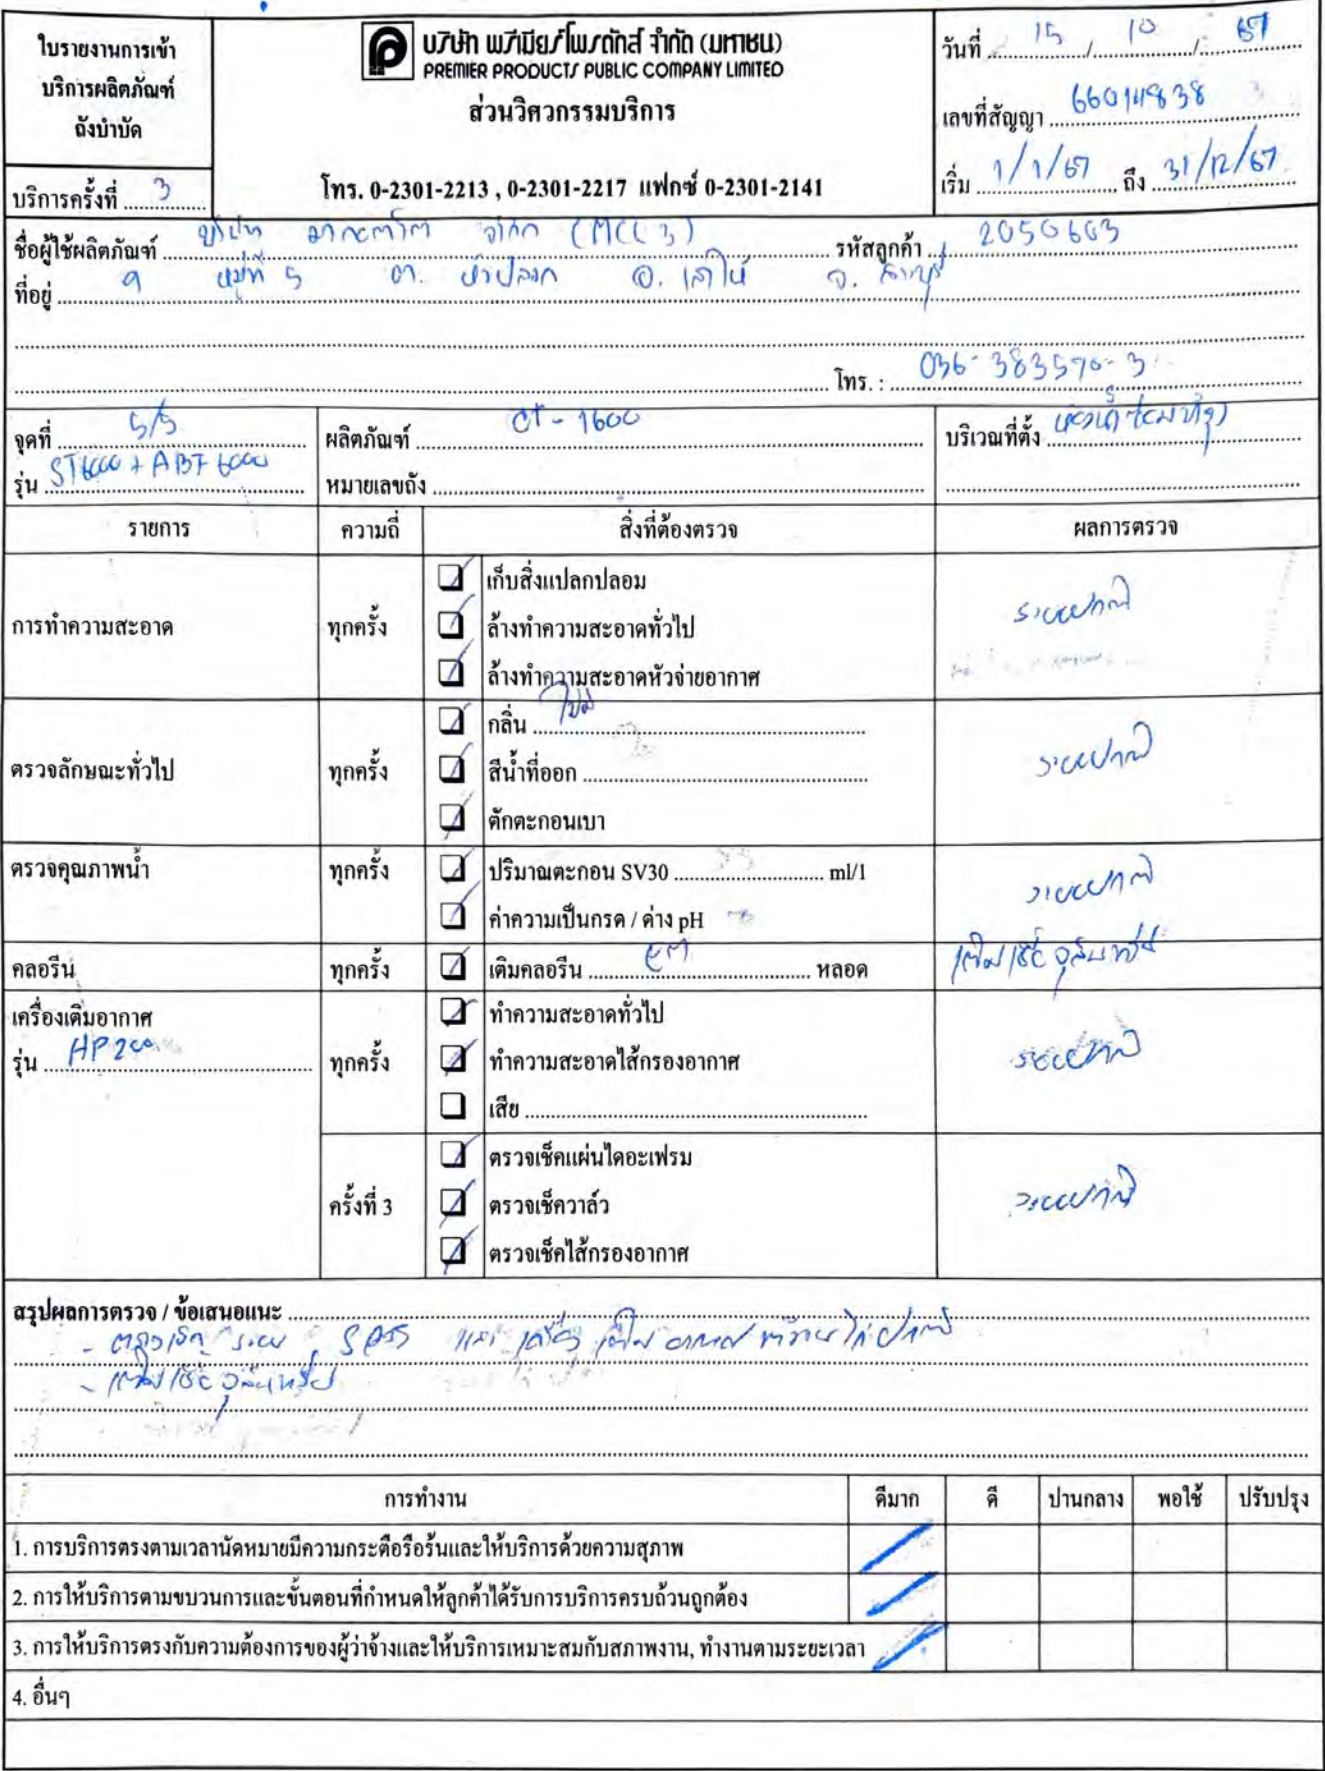 ใบรายงานการเข้า
บริการผลิตภัณฑ์
ถังบำบัด
บริการครั้งที่ 3
บริษัท พรีเมียร์โพรดักส์ จำกัด (มหาชน)
PREMIER PRODUCTS PUBLIC COMPANY LIMITED
ส่วนวิศวกรรมบริการ
โทร. 0-2301-2213 , 0-2301-2217 แฟกซ์ 0-2301-2141
วันที่ 15 / 10 / 67
เลขที่สัญญา 66014838
เริ่ม 1/1/67 ถึง 31/12/67
ชื่อผู้ใช้ผลิตภัณฑ์ บริษัท จำกัด (MCC 3) รหัสลูกค้า 2050603
ที่อยู่ 9 หมู่ที่ 5 ต. หัวปลวก อ. เสาไห้ จ. สระบุรี
โทร. : 036-383570-3
จุดที่ 5/5
รุ่น ST6000 + ABF 6000
ผลิตภัณฑ์ CT-1600
หมายเลขถัง
บริเวณที่ตั้ง
รายการ ความถี่ สิ่งที่ต้องตรวจ ผลการตรวจ
การทำความสะอาด ทุกครั้ง
เก็บสิ่งแปลกปลอม
ล้างทำความสะอาดทั่วไป
ล้างทำความสะอาดหัวจ่ายอากาศ
ระบบปกติ
ตรวจลักษณะทั่วไป ทุกครั้ง
กลิ่น ไม่มี
สีน้ำที่ออก
ตักตะกอนเบา
ระบบปกติ
ตรวจคุณภาพน้ำ ทุกครั้ง
ปริมาณตะกอน SV30 ml/l
ค่าความเป็นกรด / ด่าง pH
ระบบปกติ
คลอรีน ทุกครั้ง เติมคลอรีน หลอด เติมเชื้อจุลินทรีย์
เครื่องเติมอากาศ
รุ่น HP200
ทุกครั้ง
ทำความสะอาดทั่วไป
ทำความสะอาดไส้กรองอากาศ
เสีย
ระบบปกติ
ครั้งที่ 3
ตรวจเช็คแผ่นไดอะเฟรม
ตรวจเช็ควาล์ว
ตรวจเช็คไส้กรองอากาศ
ระบบปกติ
สรุปผลการตรวจ / ข้อเสนอแนะ
- ตรวจเช็ค ระบบ และ เครื่อง เติม อากาศ ทำงาน ได้ ปกติ
- เติมเชื้อจุลินทรีย์
การทำงาน ดีมาก ดี ปานกลาง พอใช้ ปรับปรุง
1. การบริการตรงตามเวลานัดหมายมีความกระตือรือร้นและให้บริการด้วยความสุภาพ
2. การให้บริการตามขบวนการและขั้นตอนที่กำหนดให้ลูกค้าได้รับการบริการครบถ้วนถูกต้อง
3. การให้บริการตรงกับความต้องการของผู้ว่าจ้างและให้บริการเหมาะสมกับสภาพงาน, ทำงานตามระยะเวลา
4. อื่นๆ